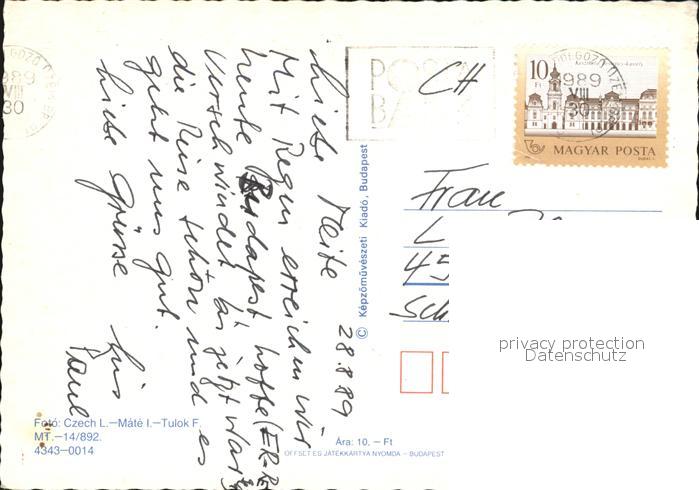 Liebe Meite 28.8.89
Mit Regen erreichen wir
heute Budapest hoffe (ER-Re
verschwindet bis jetzt war
die Reise schön und es
geht uns gut.
Liebe Grüsse
Paul
© Képzőművészeti Kiadó, Budapest
Fotó: Czech L.–Máté I.–Tulok F.
MT.–14/892.
4343–0014
Ára: 10.– Ft
OFFSET ÉS JÁTÉKKÁRTYA NYOMDA – BUDAPEST
CH
1989
VIII
30
10
MAGYAR POSTA
1989
VIII
30
Frau
L
45
Sch
privacy protection
Datenschutz